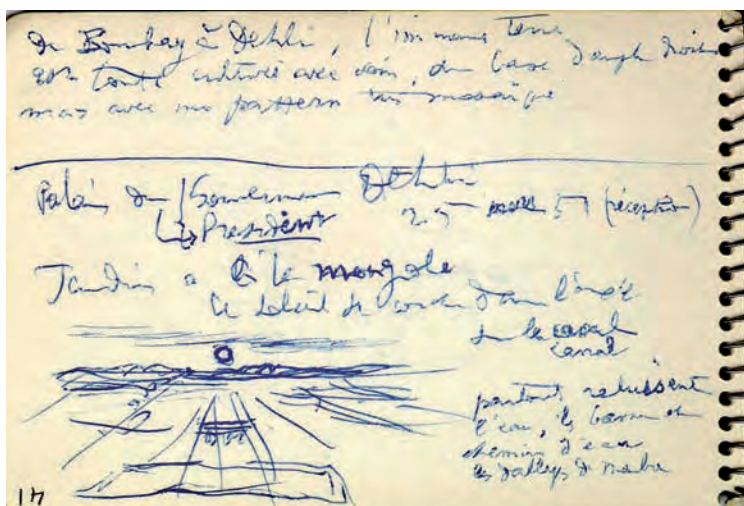 de Bombay à Dehli, l'immense terre
est toute cultivée avec soin, à base d'angle droit
mais avec un pattern très mosaïque
Palais du Gouverneur Dehli
Président 25 57 (réception)
Jardin à la mongole
le soleil se couche dans l'axe
du canal
canal
partout reluisent
l'eau, les bassins et
chemins d'eau
les dallages de marbre
41